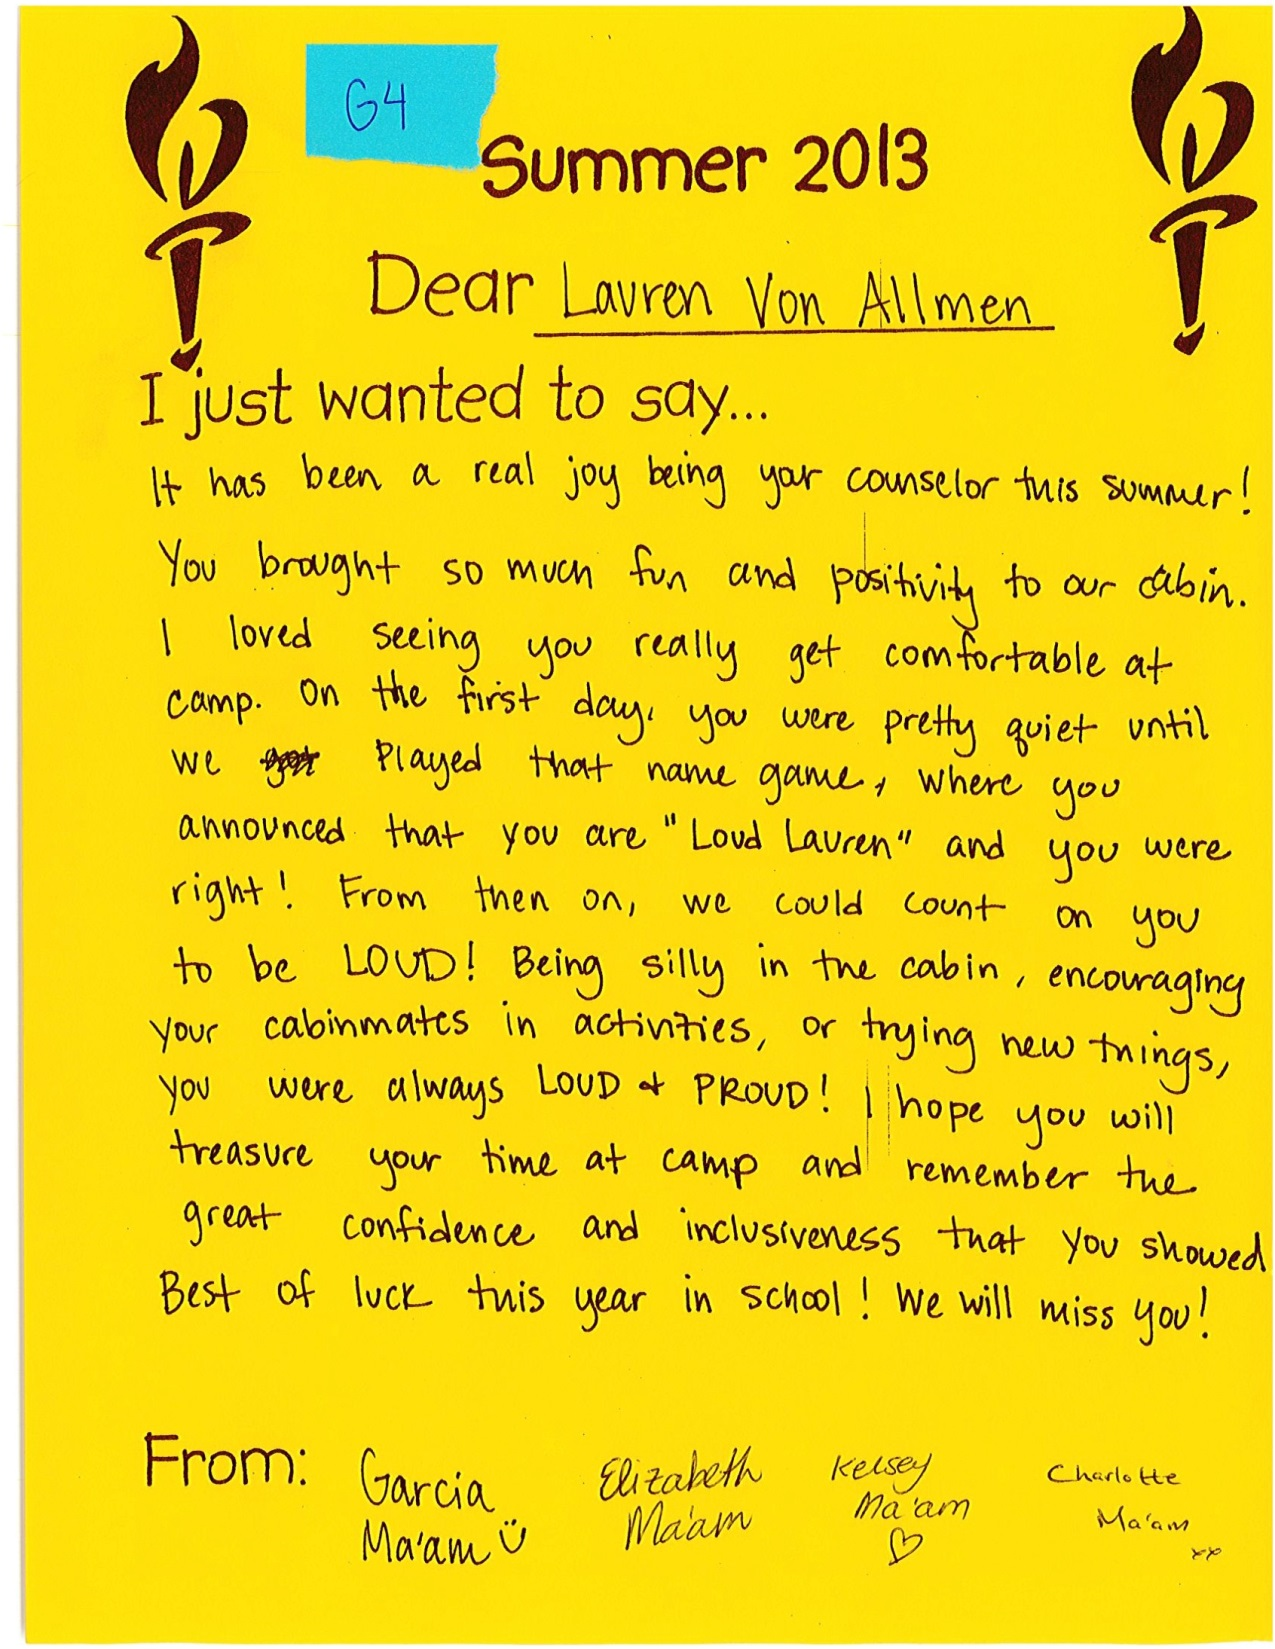 G4
Summer 2013
Dear Lauren Von Allmen
I just wanted to say...
It has been a real joy being your counselor this summer!
You brought so much fun and positivity to our cabin.
I loved seeing you really get comfortable at
camp. On the first day, you were pretty quiet until
we played that name game, where you
announced that you are "Loud Lauren" and you were
right! From then on, we could count on you
to be LOUD! Being silly in the cabin, encouraging
your cabinmates in activities, or trying new things,
you were always LOUD & PROUD! I hope you will
treasure your time at camp and remember the
great confidence and inclusiveness that you showed
Best of luck this year in school! We will miss you!
From: Garcia Ma'am Elizabeth Ma'am Kelsey Ma'am Charlotte Ma'am xx